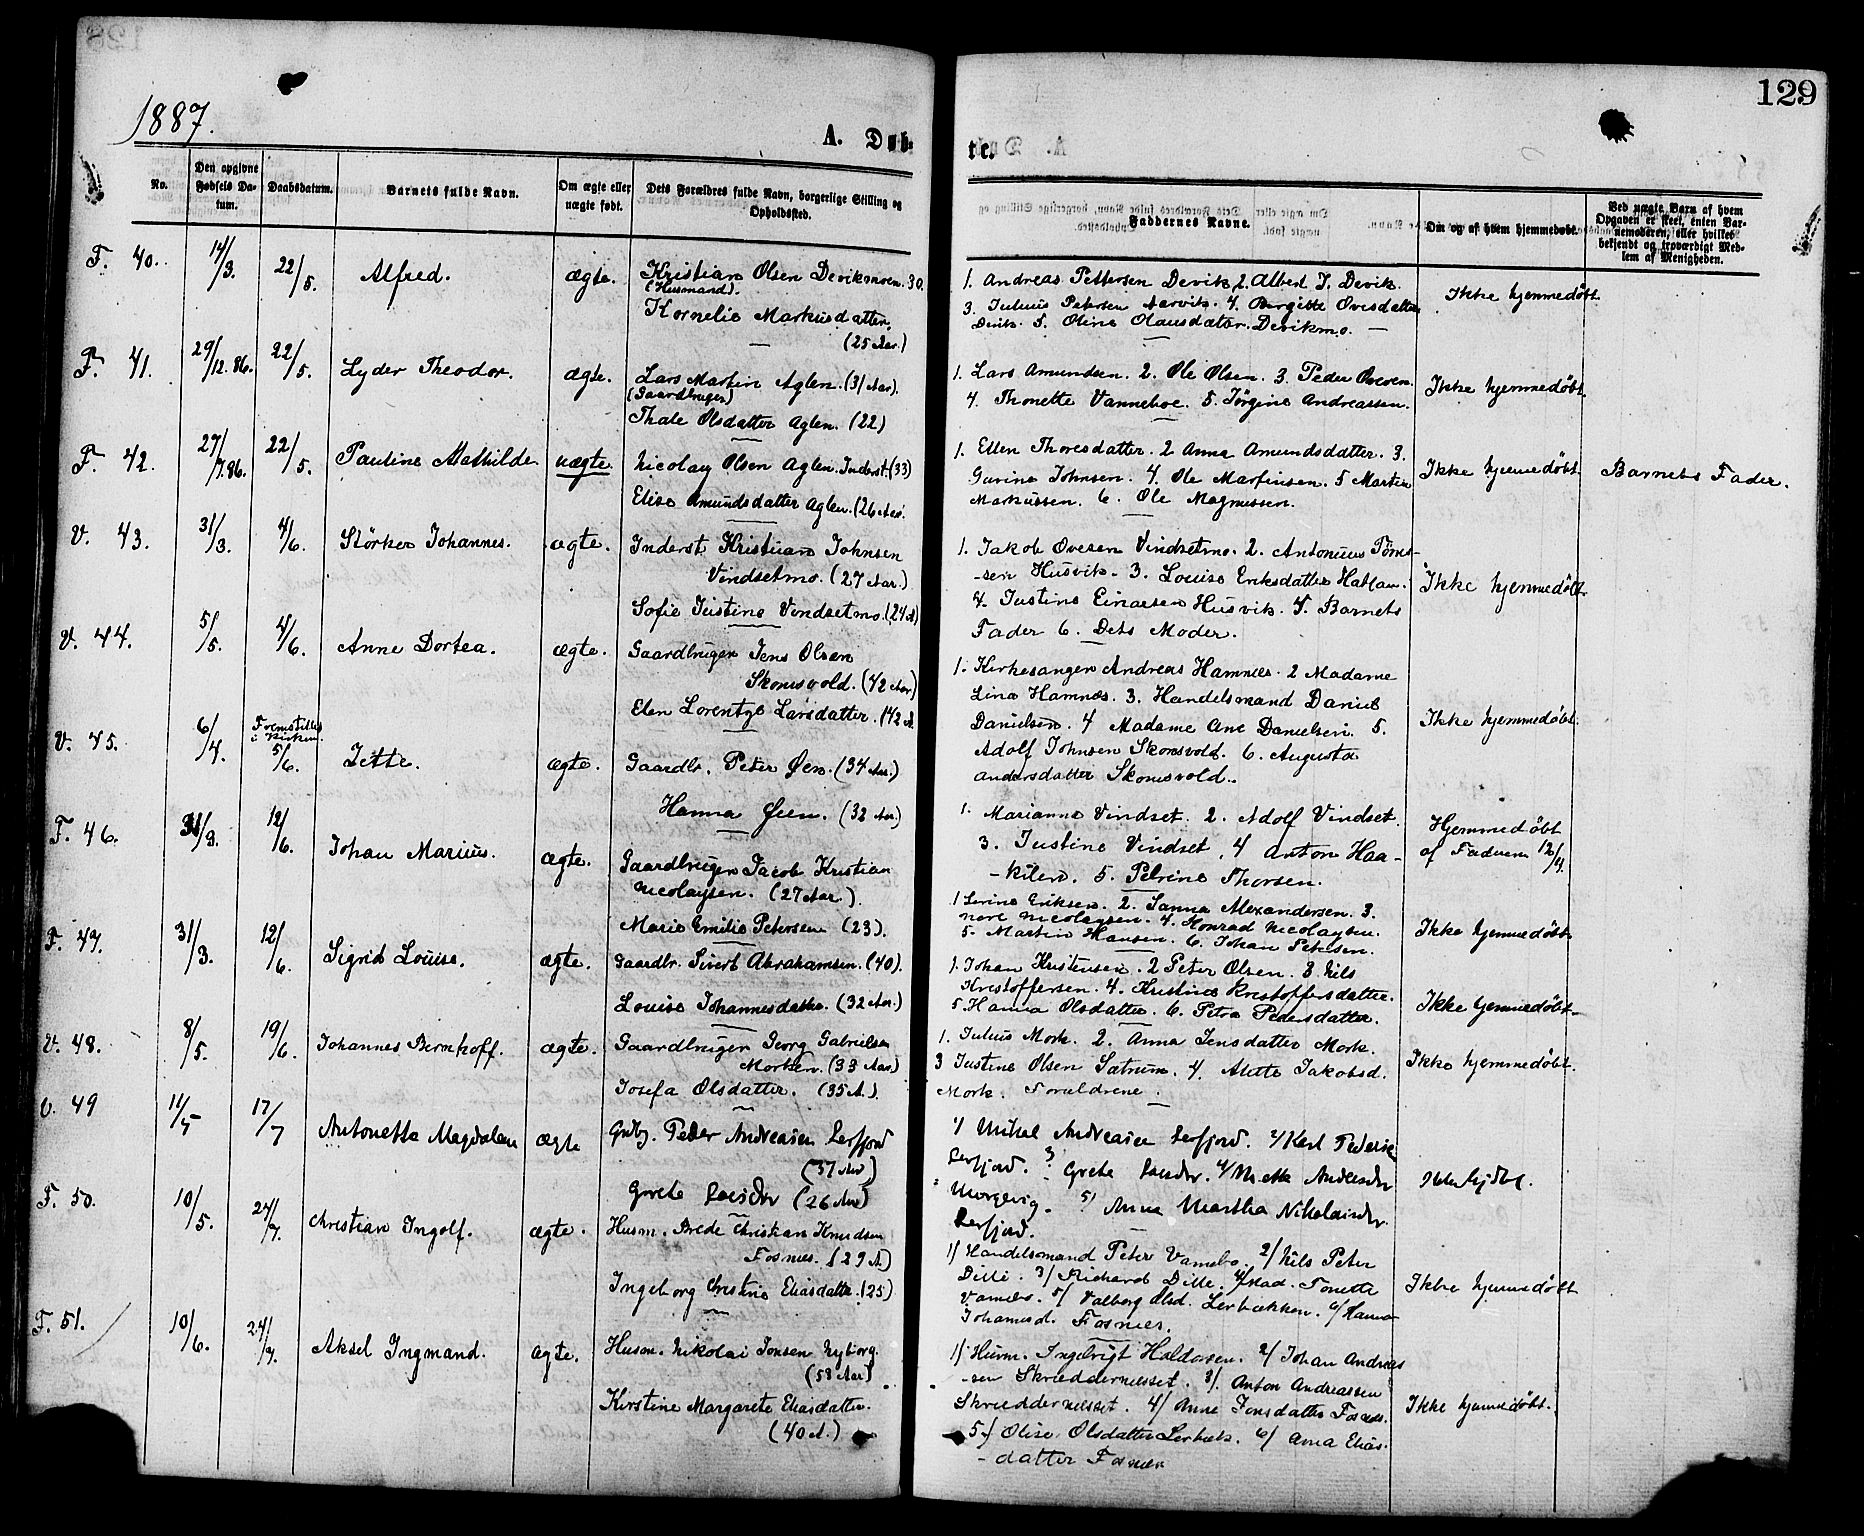 129
1887.
A. Døb-
te.
No.
Den opgivne Fødsels Da-tum.
Daabsdatum.
Barnets fulde Navn.
Om ægte eller uægte født.
Dets Forældres fulde Navn, borgerlige Stilling og Opholdssted.
Faddernes Navne.
Om og af hvem hjemmedøbt.
Ved uægte Barn af hvem Opgaven er skeet, enten Bar-nemoderen, eller hvilket bekjendt og troværdigt Med-lem af Menigheden.
F. 40. 14/3. 22/5. Alfred. ægte.
Kristian Olsen Devikmoen. 30.
(Husmand).
Kornelie Markusdatter.
(25 Aar.)
1. Andreas Pettersen Devik 2. Albert J. Devik.
3. Julius Petersen Aarvik. 4. Birgitte Ovesdatter
Devik. 5. Oline Olausdatter. Devikmo.
Ikke hjemmedøbt.
F. 41. 29/12. 86. 22/5. Lyder Theodor. ægte.
Lars Martin Aglen. (31 Aar).
(Gaardbruger)
Thale Olsdatter Aglen. (22)
1. Lars Amundsen. 2. Ole Olsen. 3. Peder Ovesen.
4. Thonette Vanneboe. 5. Jørgine Andreassen.
Ikke hjemmedøbt.
F. 42. 27/7. 86. 22/5. Pauline Mathilde uægte.
Nicolay Olsen Aglen. Inderst. (33)
Elise Amundsdatter Aglen. (26 Aar.
1. Ellen Thoresdatter. 2 Anna Amundsdatter. 3.
Gurine Johnsen. 4. Ole Marfinsen. 5 Martin
Markussen. 6. Ole Magnussen.
Ikke hjemmedøbt.
Barnets Fader.
V. 43. 31/3. 4/6. Størker Johannes. ægte.
Inderst Kristian Johnsen
Vindsetmo. (27 Aar.)
Sofie Justine Vindsetmo. (24 A)
1. Jakob Ovesen Vindsetmo. 2. Antonius Tønnes-
-sen Husvik. 3. Louise Eriksdatter Hatlan.
4. Justine Einarsen Husvik. 5. Barnets
Fader 6. Dets Moder.
Ikke hjemmedøbt.
V. 44. 5/5. 4/6. Anne Dortea. ægte.
Gaardbruger Jens Olsen
Skomsvold. (42 Aar)
Elen Lorentze Larsdatter. (42 A.
1. Kirkesanger Andreas Hamnes. 2 Madame
Lina Hamnes. 3. Handelsmand Daniel
Danielsen. 4 Madame Ane Danielsen. 5.
Adolf Johnsen Skomsvold. 6. Augusta
Andersdatter Skomsvold.
Ikke hjemmedøbt.
V. 45. 6/4. Fremstillet
i Kirken
5/6. Jette. ægte.
Gaardbr. Peter Øen. (34 Aar.)
Hanna Øien. (32 Aar.)
1. Marianne Vindset. 2. Adolf Vindset.
3. Justine Vindset, 4 Anton Haa-
-kilen. 5. Petrine Thorsen.
Hjemmedøbt
af Faderen 12/4.
F. 46. 31/3. 12/6. Johan Marius. ægte.
Gaardbruger Jacob Kristian
Nicolaysen. (27 Aar).
Marie Emilie Petersen (23).
1 Serine Eriksen. 2. Sanna Alexandersen. 3.
Nore Nicolaysen. 4. Konrad Nicolaysen.
5. Martin Hansen. 6. Johan Petersen.
Ikke hjemmedøbt.
F. 47. 31/3. 12/6. Sigrid Louise. ægte.
Gaardbr. Sivert Abrahamsen. (40).
Louise Johannesdatter. (32 Aar.)
1. Johan Kristensen. 2 Peter Olsen. 3. Nils
Kristoffersen. 4. Kristine Kristoffersdatter.
5. Hanna Olsdatter. 6. Petra Pedersdatter.
Ikke hjemmedøbt.
V. 48. 8/5. 19/6. Johannes Bernhoff. ægte.
Gaardbruger Georg Gabrielsen
Morken. (33 Aar.)
Josefa Olsdatter. (35 A.)
1. Julius Mork. 2. Anna Jensdatter Mork.
3 Justine Olsen Satrum. 4. Alette Jakobsd.
Mork. Forældrene.
Ikke hjemmedøbt.
V. 49 11/5 17/7 Antonette Magdalena ægte
Grdbr. Peder Andreasen Lerfjord
(37 Aar)
Grete Larsdtr (26 Aar)
1/ Mikal Andreasen Lerfjord. 2/ Karl Pedersen
Lerfjord. 3/ Grete Larsdtr. 4/ Mette Andersdtr
Morgevig. 5/ Anna Martha Nikolaisdtr.
Lerfjord.
F. 50. 10/5. 24/7. Christian Ingolf. ægte.
Husm. Brede Christian Knudsen
Fosnes. (29 A.)
Ingeborg Christine Eliasdatter. (25)
1/ Handelsmand Peter Vamebo. 2/ Nils Peter
Dille. 3/ Richard Dille. 4/ Mad. Tonette
Vamebo. 5/ Valborg Olsd. Lerbækken. 6/ Hanna
Johannesd. Fosnes.
Ikke hjemmedøbt
F. 51. 10/6. 24/7. Aksel Ingmand. ægte.
Husm. Nikolai Jonsen Nyborg.
(53 Aar)
Kirstine Margarete Eliasdatter.
(40 A.)
1/ Husm. Ingebrigt Haldorsen. 2/ Johan Andreas
-sen Skræddernesset. 3/. Anton Andreassen
Skræddernesset. 4/ Anne Jonsdatter Fosnes.
5/ Olise Olsdatter Lerbæk. 6/ Anna Elias-
-datter Fosnes
Ikke hjemmedøbt.